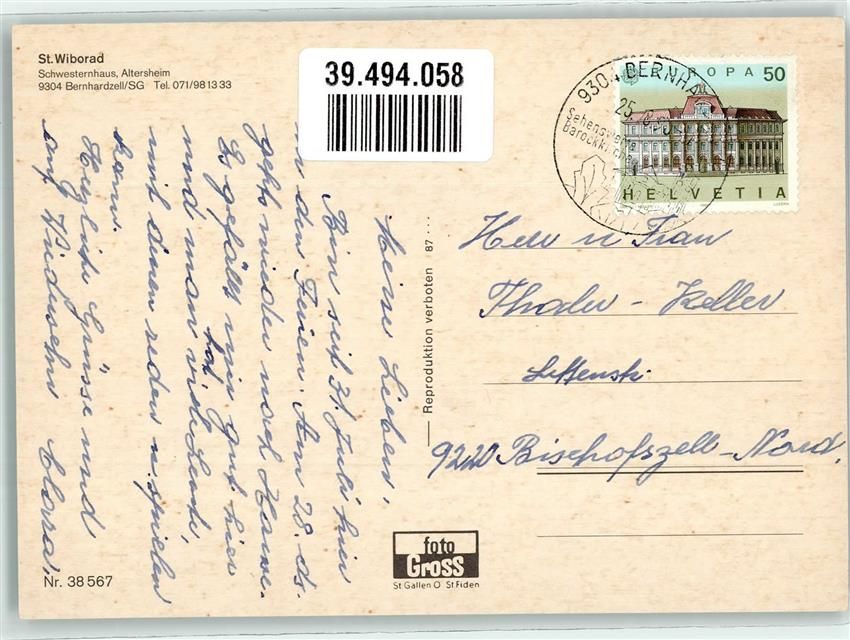 St. Wiborad
Schwesternhaus, Altersheim
9304 Bernhardzell/SG Tel. 071/98 13 33
39.494.058
9304 BERNHA
25.
Sehenswerte
Barockkirche
EUROPA 50
HELVETIA
Meine Lieben,
Bin seit 31. Juli hier
in den Ferien. Am 28. ds.
geht's wieder nach Hause.
Es gefällt mir gut hier
und man hat viele Leute,
mit denen reden u. spielen
kann.
Herzliche Grüsse und
auf Wiedersehn Clara.
Reproduktion verboten 87 ...
Herr u Frau
Thaler - Keller
9220 Bischofszell - Nord,
foto
Gross
St Gallen O St Fiden
Nr. 38 567